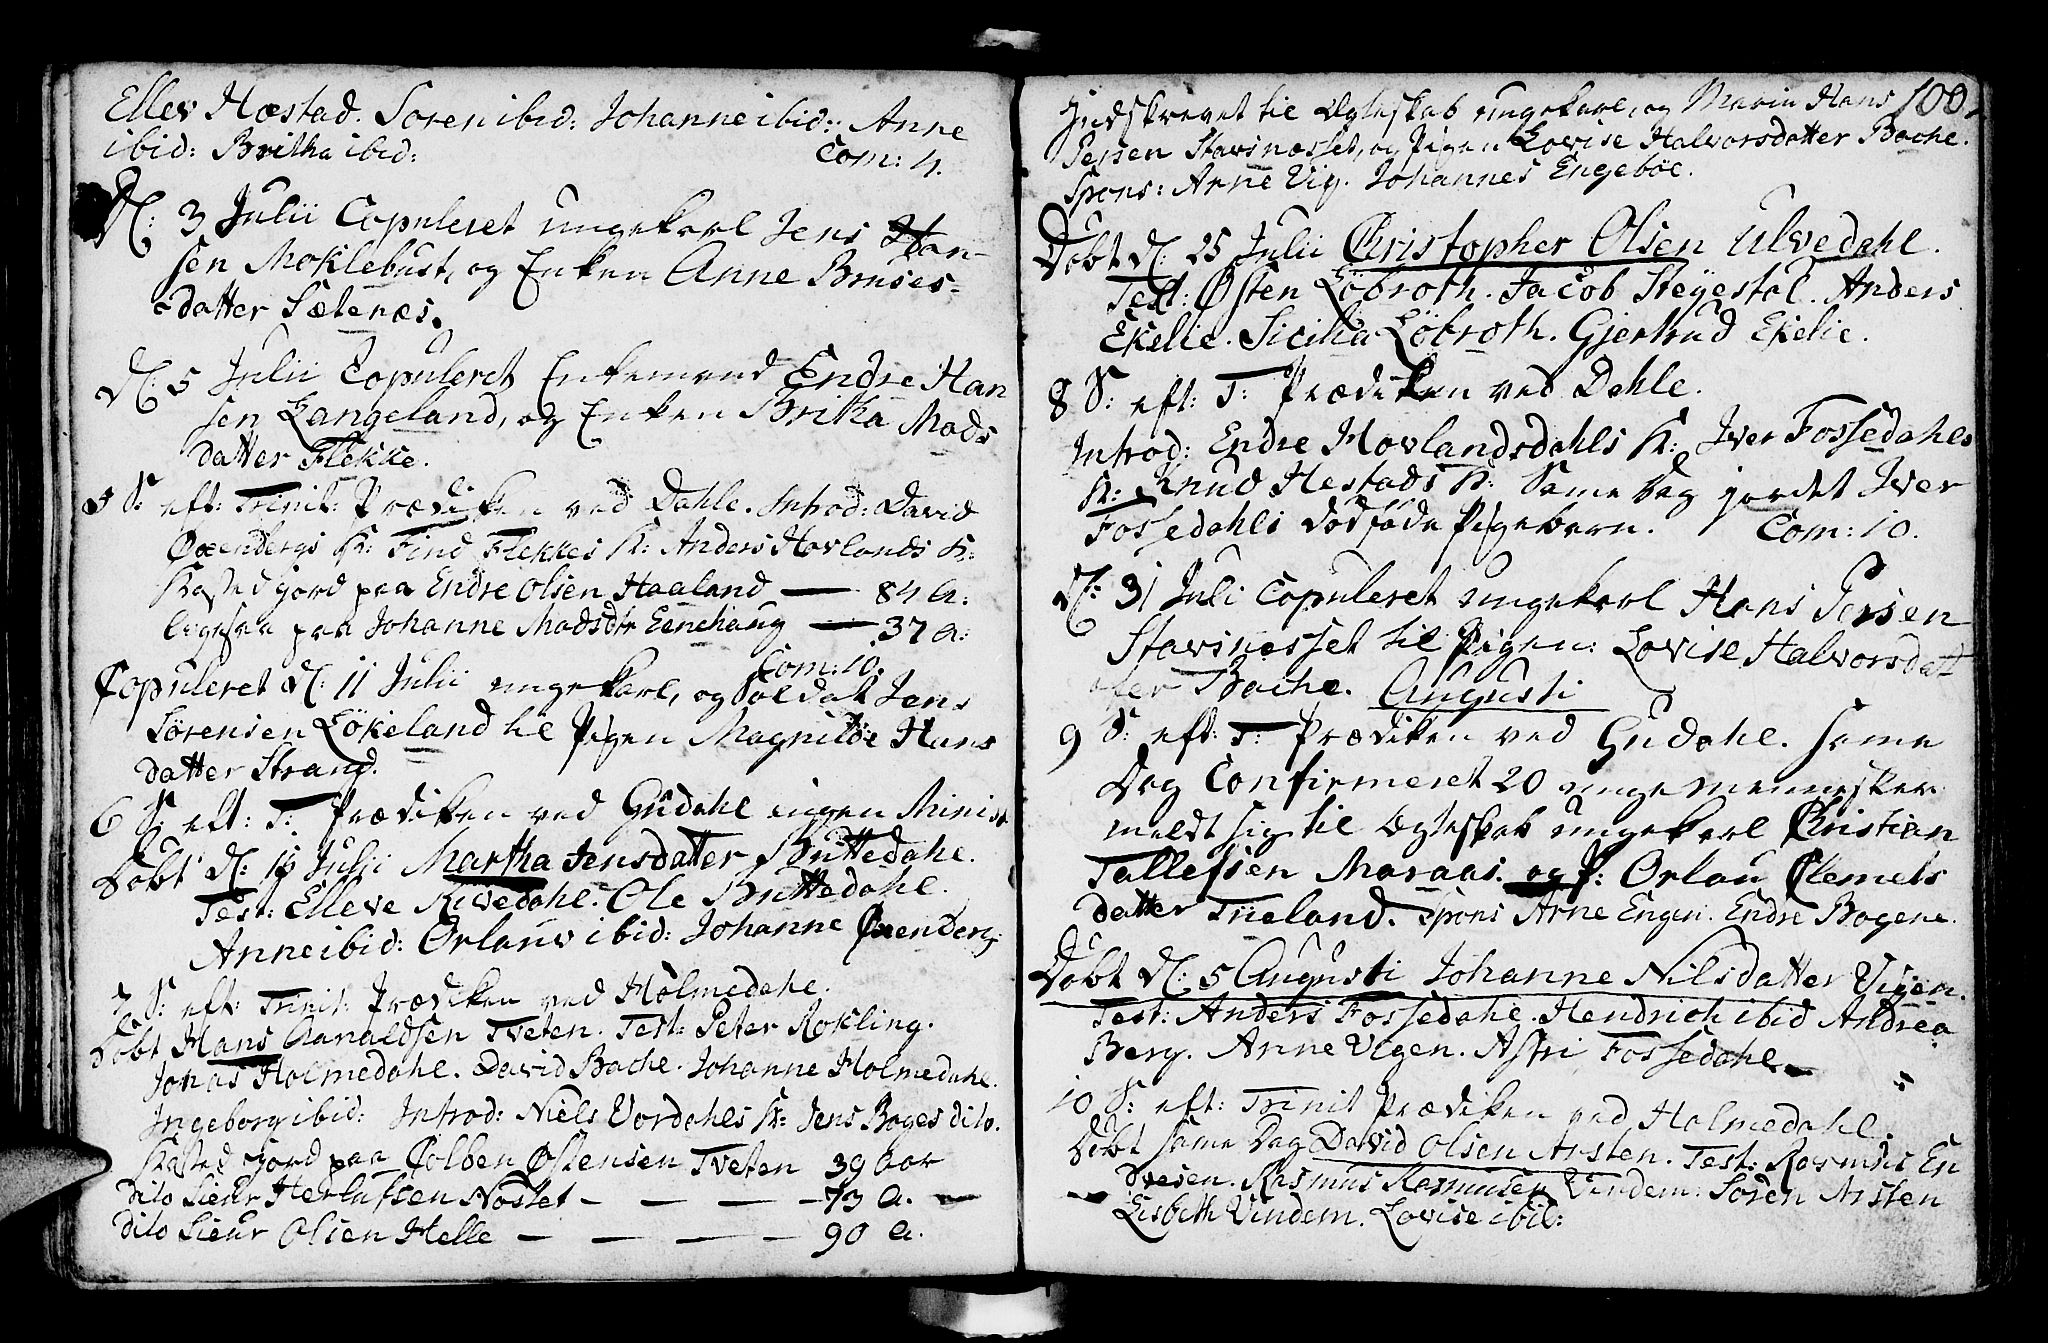 Ellev Hæstad. Soren ibid: Johanne ibid: Anne
ibid: Britha ibid: Com: 4.
D: 3 Julii Copuleret ungekarl Jens Han-
sen Moklebust, og Enken Anne Bruses-
datter Sætenæs.
D: 5 Julii Copuleret Enkemand Endre Han
sen Langeland, og Enken Britha Mads
datter Flekke.
S: eft: Trinit: Prædiken ved Dahle. Introd: David
Oxenbergs K: Find Flekkes K: Anders Hovlands K:
Kasted Jord paa Endre Olsen Haaland — 84 a:
ligesaa paa Johanne Madsdtr Eenehaug — 37 a:
Com: 10.
Copuleret D: 11 Julii ungekarl, og Soldat Jens
Sørensen Løkeland til Pigen Magnilde Hans
datter Strand.
6 S: eft: T: Prædiken ved Gudahl ingen Minist
Døbt D: Julii Martha Jensdatter Buttedahl.
Test: Elleve Rivedahl. Ole Buttedahl.
Anne ibid: Orlauv ibid: Johanne Oxenberg.
7 S: eft: Trinit: Prædiken ved Holmedahl.
Døbt Hans Aanaldsen Tveten. Test: Peter Rokling.
Jonas Holmedahl. David Bache. Johanne Holmedahl.
Ingeborg ibid: Introd: Niels Vordahls K: Jens Bages dito.
Kasted Jord paa Colben Østensen Tveten 39 aar
dito Sieur Herlufsen Nostet — — — 73 a. —
dito Sieur Olsen Helle — — — — 90 a.
100.
Indskrevet til Egteskab ungekarl, og Hans
Persen Stavsnæsset, og Pigen Lovise Halvorsdatter Bache.
Spons: Arne Vig. Johannes Engebøe.
Døbt D: 25 Julii Christopher Olsen Ulvedahl.
Test: Østen Løbroth. Jacob Steyestøl. Anders
Ekelie. Sicilia Løbroth. Gjertrud Ekelie.
8 S: eft: T: Prædiken ved Dahle.
Introd: Endre Hovlandsdahls K: Iver Fossedahls
K: Knud Hestads K: Same Dag jordet Iver
Fossedahls dødføde Pigebarn. Com: 10.
D: 31 Juli Copuleret ungekarl Hans Persen
Stavsnæsset til Pigen: Lovise Halvorsdatt
ter Bache. Augusti
9 S: eft: T: Prædiken ved Gudahl. Same
Dag Confirmeret 20 unge Mennesker
meldt sig til Egteskab ungekarl Christian
Tallefsen Maraas. og P: Orlau Clemets
datter Trieland. Spons Arne Engen. Endre Bogene.
Døbt D: 5 Augusti Johanne Nilsdatter Vigen.
Test: Anders Fossedahl. Hendrich ibid Andrea
Berg. Anne Vigen. Astri Fossedahl.
10 S: eft: Trinit Prædiken ved Holmedahl.
Døbt same Dag David Olsen Arsten. Test: Rasmus En
dresen. Rasmus Rasmusen Vindem: Soren Arsten
Lisbeth Vindem. Lovise ibid: